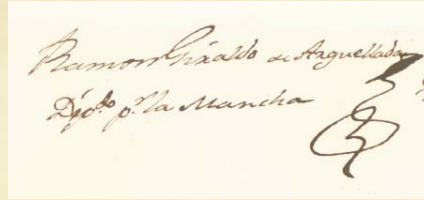 Ramon Giraldo de Arquellada
Dip.do p.r la Mancha